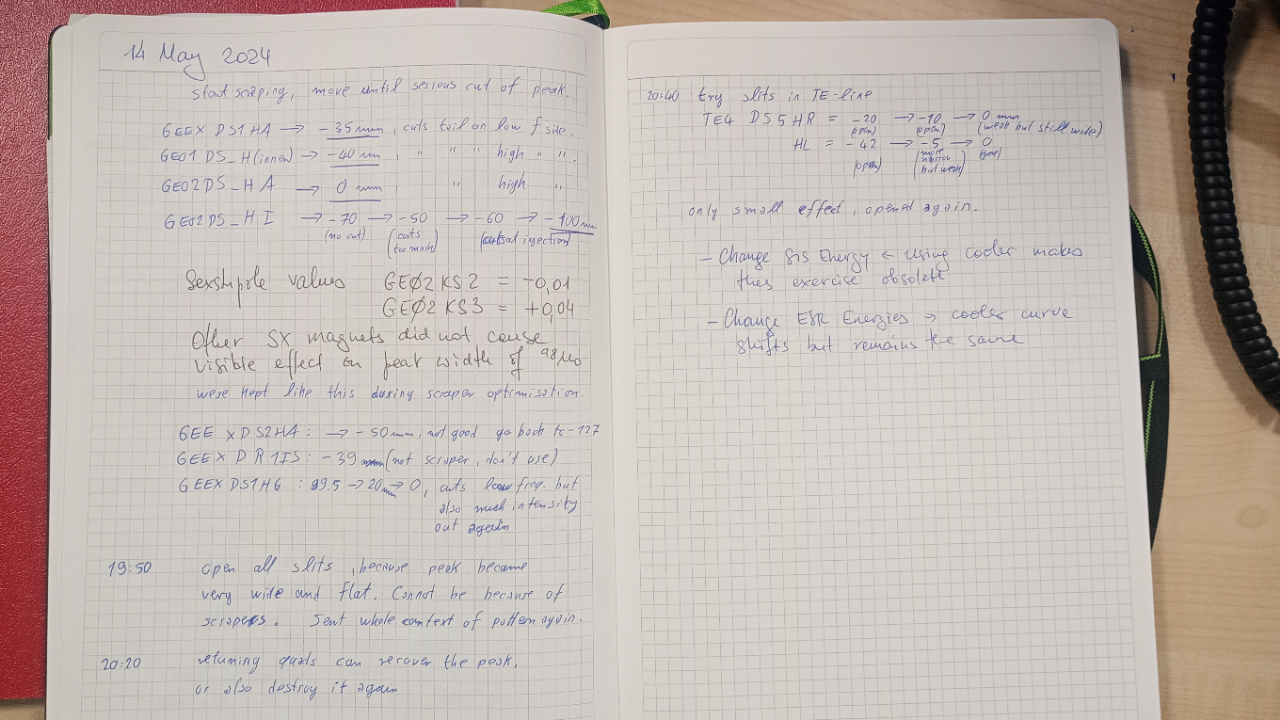 14 May 2024
start scraping, move until serious cut of peak.
GEEX DS1HA → -35 mm, cuts tail on low f side.
GE01 DS_H (inner) → -40 mm " " " high " ".
GE02DS_HA → 0 mm, " high "
GE02DS_HI → -70 → -50 → -60 → -100 mm
(no cut) (cuts too much) (cuts at injection)
Sexstupole values GEØ2KS2 = -0,01
GEØ2KS3 = +0,04
Other SX magnets did not cause
visible effect on peak width of 98Mo
were kept like this during scraper optimisation.
GEEXDS2HA: → -50 mm, not good go back to -127
GEEXDR1IS: -39 mm (not scraper, don't use)
GEEXDS1HG: 99.5 → 20 mm → 0, cuts low freq. but
also much intensity
out again
19:50 open all slits, because peak became
very wide and flat. Cannot be because of
scrapers. Sent whole context of pattern again.
20:20 retuning quads can recover the peak,
or also destroy it again
20:40 try slits in TE-line
TE4 DS5HR = -20 → -10 → 0 mm
(open) (open) (weak but still wide)
HL = -42 → -5 → 0
(open) (more narrow but weak) (gone)
only small effect, opened again.
- Change SIS Energy ← Using cooler makes
this exercise obsolete
- Change ESR Energies → cooler curve
shifts but remains the same